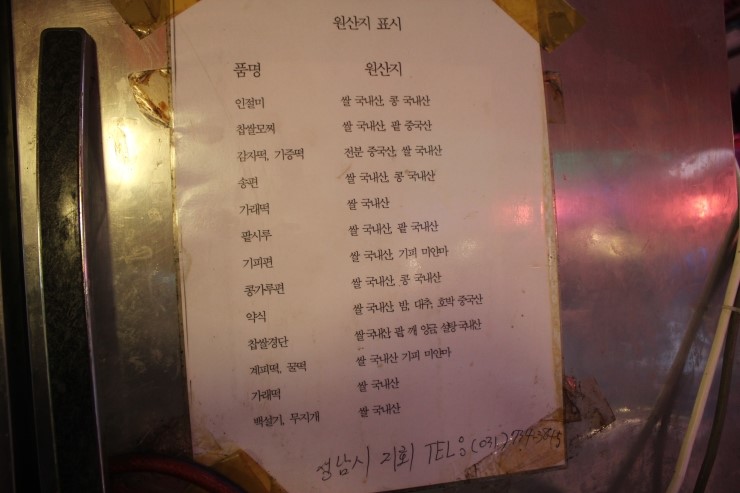 원산지 표시
품명 원산지
인절미 쌀 국내산, 콩 국내산
찹쌀모찌 쌀 국내산, 팥 중국산
감자떡, 기증떡 전분 중국산, 쌀 국내산
송편 쌀 국내산, 콩 국내산
가래떡 쌀 국내산
팥시루 쌀 국내산, 팥 국내산
기피편 쌀 국내산, 기피 미얀마
콩가루편 쌀 국내산, 콩 국내산
약식 쌀 국내산, 밤, 대추, 호박 중국산
찹쌀경단 쌀 국내산, 팥, 깨 앙금 설탕 국내산
계피떡, 꿀떡 쌀 국내산 기피 미얀마
가래떡 쌀 국내산
백설기, 무지개 쌀 국내산
성남시 지회 TEL: (031)